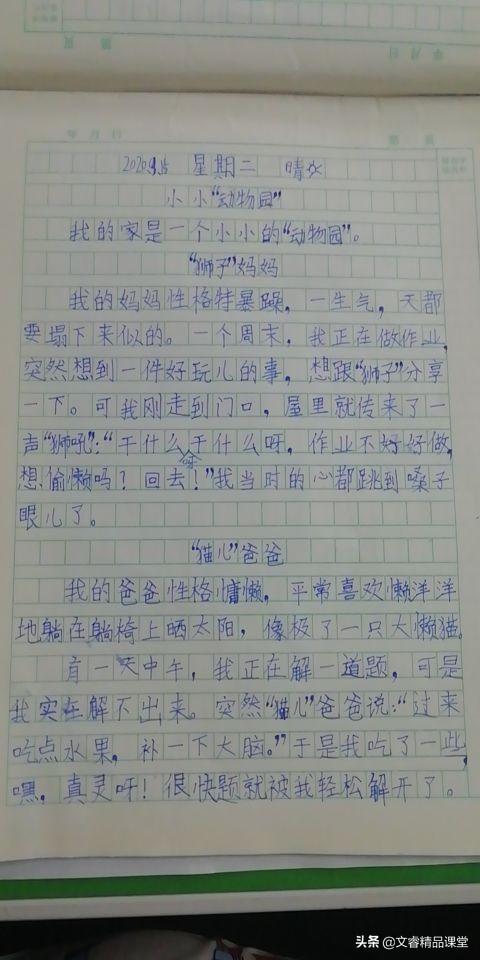 2020.9.15 星期二 晴
小小“动物园”
我的家是一个小小的“动物园”。
“狮子”妈妈
我的妈妈性格特暴躁，一生气，天都
要塌下来似的。一个周末，我正在做作业，
突然想到一件好玩儿的事，想跟“狮子”分享
一下。可我刚走到门口，屋里就传来了一
声“狮吼”：“干什么呀干什么呀，作业不好好做，
想偷懒吗？回去！”我当时的心都跳到嗓子
眼儿了。
“猫儿”爸爸
我的爸爸性格慵懒，平常喜欢懒洋洋
地躺在躺椅上晒太阳，像极了一只大懒猫。
有一天中午，我正在解一道题，可是
我实在解不出来。突然“猫儿”爸爸说：“过来
吃点水果，补一下大脑。”于是我吃了一些，
嘿，真灵呀！很快题就被我轻松解开了。
头条@文睿精品课堂